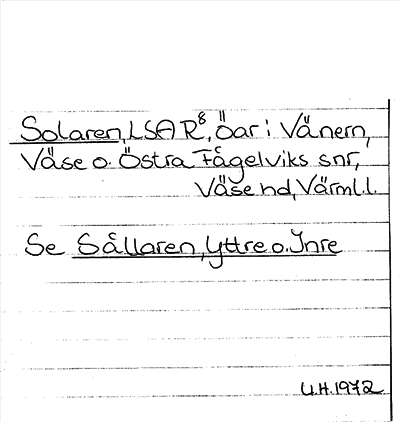 Solaren, LSA R⁸, Öar i Vänern,
Väse o. Östra Fågelviks snr,
Väse hd, Värml. l.
Se Sållaren, Yttre o. Inre
U.H. 1972